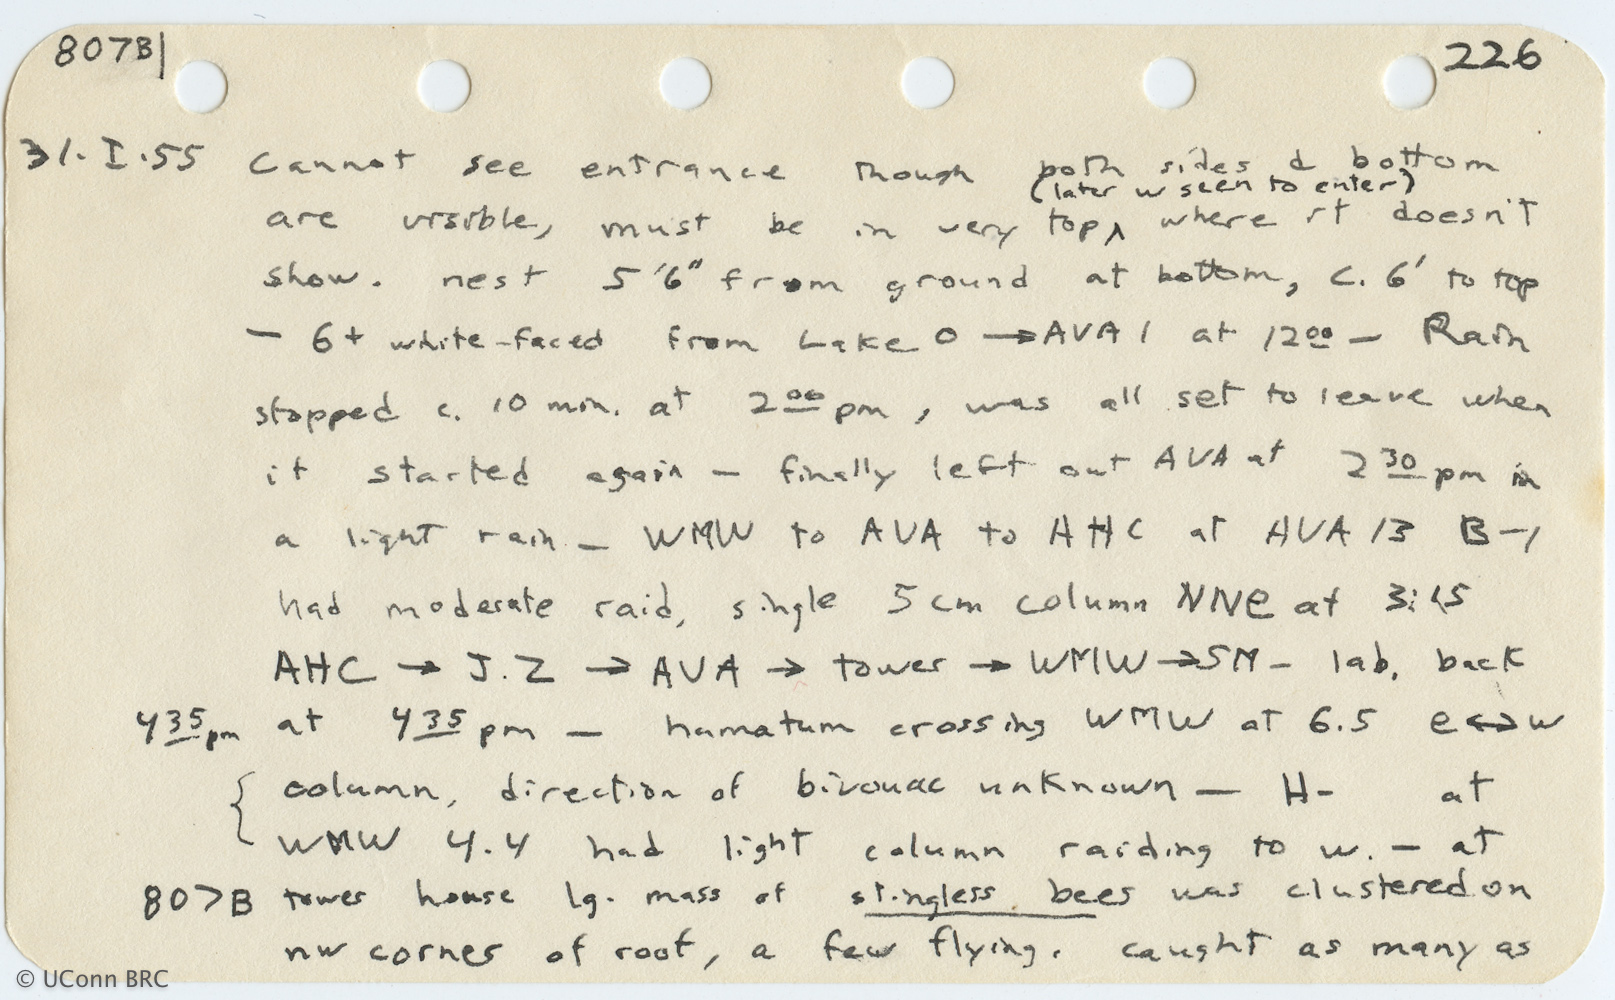 807B| 226
31.I.55 Cannot see entrance though both sides & bottom
(later w seen to enter)
are visible, must be in very top‸ where it doesn't
show. nest 5'6" from ground at bottom, c. 6' to top
— 6+ white-faced from Lake O → AVA 1 at 12 00 — Rain
stopped c. 10 min. at 2 00 pm, was all set to leave when
it started again — finally left out AVA at 2 30 pm in
a light rain — WMW to AVA to AHC at AVA 13 B-1
had moderate raid, single 5 cm column NNE at 3:15
AHC → J.Z → AVA → tower → WMW → SM — lab, back
4 35 pm at 4 35 pm — hamatum crossing WMW at 6.5 e↔w
{ column, direction of bivouac unknown — H- at
WMW 4.4 had light column raiding to w. — at
807B tower house lg. mass of stingless bees was clustered on
nw corner of roof, a few flying. caught as many as
© UConn BRC